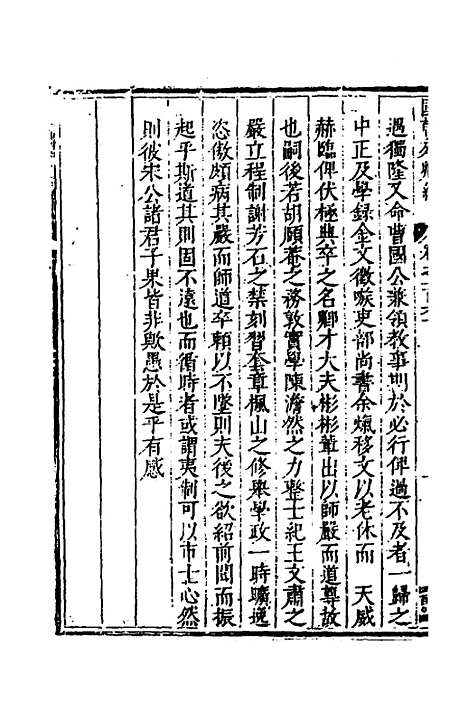 遇獨隆又命曹國公兼領教事期於必行俾過不及者一歸之
中正及學録金文徵嗾吏部尚書余熂移文以老休而　天威
赫臨俾伏極典卒之名卿才大夫彬彬輩出以師嚴而道尊故
也嗣後若胡頤菴之務敦實學陳澹然之力整士紀王文肅之
嚴立程制謝芳石之禁刻習奎章楓山之修舉學政一時曠逸
恣傲頗病其嚴而師道卒頼以不墜則夫後之欲紹前聞而振
起乎斯道其則固不遠也而徇時者或謂夷制可以市士心然
則彼宋公諸君子果皆非歟愚於是乎有感